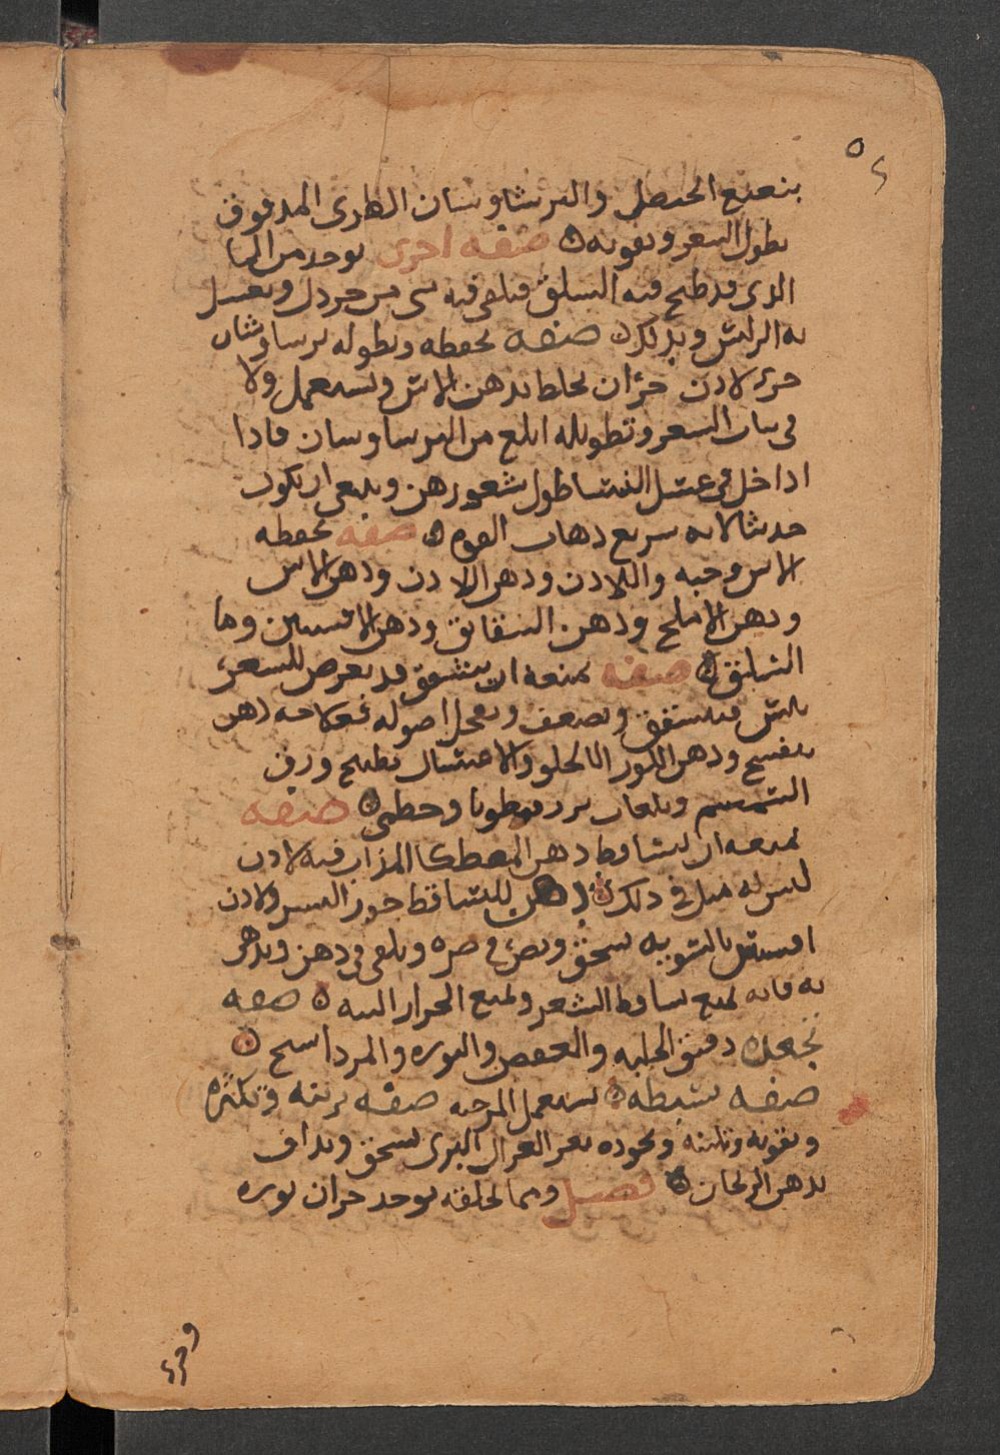 بنعنع الحنطى والبرشاوشان الطرى المدقوق
يطول الشعر ويقويه ه صفه اخرى يوخذ من الما
الذى قد طبخ فيه السلق فيلقى فيه شى من خردل ويغسل
به الراس ويدلك ه صفه تحفظه وتطوله برشاوشان
جزء لادن جزان يخلط بدهن الاس ويستعمل ولا
فى نبات الشعر وتطويله ابلغ من البرشاوشان فاذا
ادخل فى غسل النسا طول شعورهن وينبغى ان يكون
حديثا لانه سريع ذهاب القوه ه صفه تحفظه
الاس وحبه واللادن ودهن اللادن ودهن الاس
ودهن الاملج ودهن الشقايق ودهن الافسنتين وما
السلق ه صفه تمنعه ان يتشقق قد يعرض للشعر
يبس فيتشقق ويضعف اصوله فعلاجه دهن
بنفسج ودهن اللوز الحلو والاغتسال بطبيخ ورق
السمسم وبلعاب بزر قطونا وخطمى ه صفه
تمنعه ان يتساقط دهن المصطكا المذاب فيه لادن
ليس له مثل فى ذلك ه دهن للتساقط جوز السرو لادن
يسحق ويصر فى صره ويلقى فى دهن ويدهن
به فانه يمنع تساقط الشعر ويمنع البته ه صفه
تجعده دقيق الحلبه والعفص والنوره والمرداسنج ه
صفه تبسطه ه يستعمل صفه تربيه وتكثره
ويقويه وتلينه وتجوده بعر الغزال البرى يسحق ويداف
بدهن الريحان ه فصل ومما يحلقه يوخذ جزان نوره